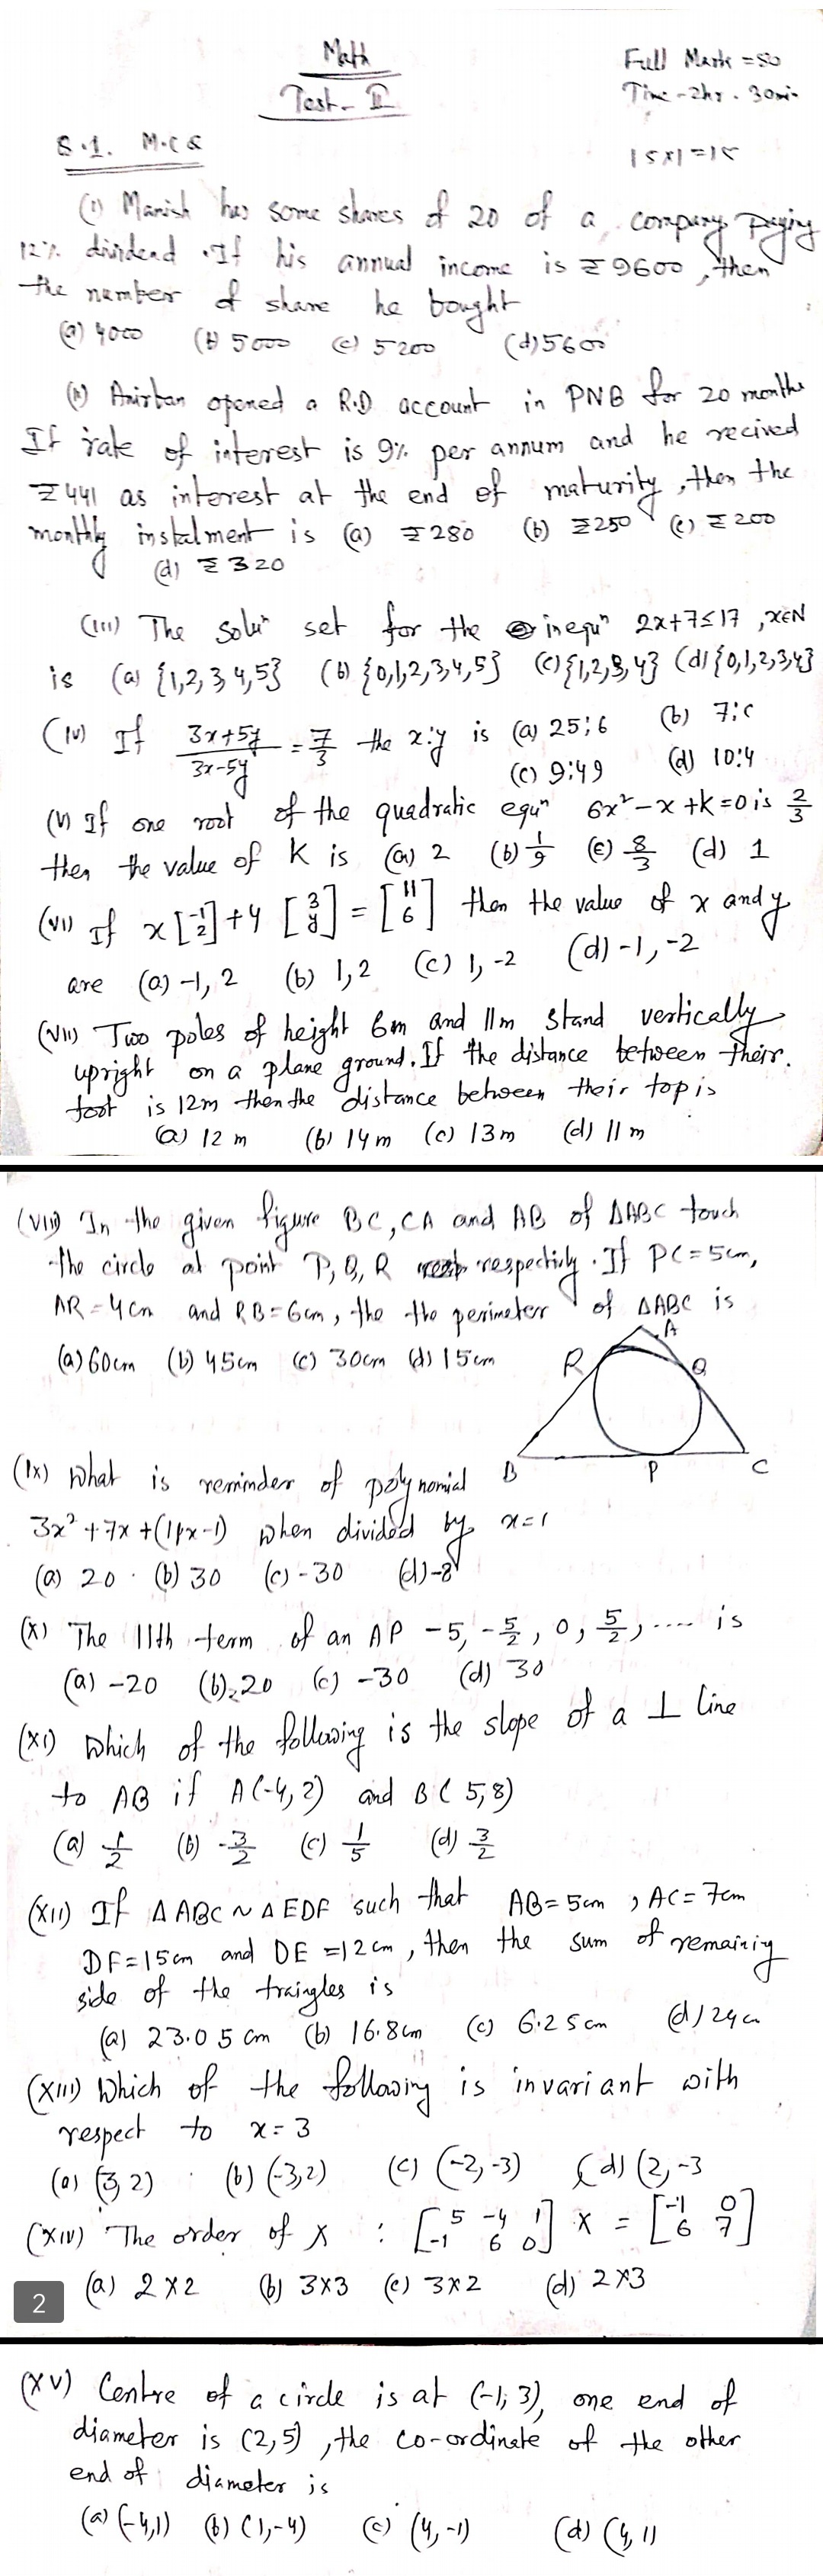 Math
Full Mark = 50
Test - II
Time - 2hr. 30min
Q.1. M.C.Q
15x1=15
(i) Manish has some shares of 20 of a company paying
12% dividend. If his annual income is ₹9600, then
the number of share he bought
(a) 4000 (b) 5000 (c) 5200 (d) 5600
(ii) Anirban opened a R.D account in PNB for 20 months
If rate of interest is 9% per annum and he recived
₹441 as interest at the end of maturity, then the
monthly instalment is (a) ₹280 (b) ₹250 (c) ₹200
(d) ₹320
(iii) The soluⁿ set for the inequⁿ 2x+7≤17, x∈N
is (a) {1,2,3,4,5} (b) {0,1,2,3,4,5} (c) {1,2,3,4} (d) {0,1,2,3,4}
(iv) If (3x+5y)/(3x-5y) = 7/3 the x:y is (a) 25:6 (b) 7:
(c) 9:49 (d) 10:4
(v) If one root of the quadratic equⁿ 6x²-x+k=0 is 2/3
then the value of K is (a) 2 (b) 1/9 (c) 8/3 (d) 1
(vi) If x[-1 2]+4[3 y]=[11 6] then the value of x and y
are (a) -1, 2 (b) 1, 2 (c) 1, -2 (d) -1, -2
(vii) Two poles of height 6m and 11m stand vertically
upright on a plane ground. If the distance between their
foot is 12m then the distance between their top is
(a) 12 m (b) 14m (c) 13m (d) 11m
(viii) In the given figure BC, CA and AB of ΔABC touch
the circle at point P, Q, R respectivly. If PC = 5cm,
AR = 4cm and RB = 6cm, the the perimeter of ΔABC is
(a) 60cm (b) 45cm (c) 30cm (d) 15cm
A
R
Q
B
P
C
(ix) What is reminder of polynomial
3x²+7x+(11x-1) when divided by x=1
(a) 20 (b) 30 (c) -30 (d) -8
(x) The 11th term of an AP -5, -5/2, 0, 5/2, .... is
(a) -20 (b) 20 (c) -30 (d) 30
(xi) Which of the following is the slope of a ⊥ line
to AB if A(-4, 2) and B(5, 8)
(a) 1/2 (b) -3/2 (c) 1/5 (d) 3/2
(xii) If Δ ABC ~ Δ EDF such that AB = 5cm, AC = 7cm
DF = 15cm and DE = 12cm, then the sum of remainiy
side of the traingles is
(a) 23.05 cm (b) 16.8cm (c) 6.25cm (d) 24c
(xiii) Which of the following is invariant with
respect to x = 3
(a) (3, 2) (b) (-3, 2) (c) (-2, -3) (d) (2, -3
(xiv) The order of X : [5 -4 1 -1 6 0] X = [-1 0 6 7]
(a) 2x2 (b) 3x3 (c) 3x2 (d) 2x3
2
(xv) Centre of a circle is at (-1, 3), one end of
diameter is (2, 5), the co-ordinate of the other
end of diameter is
(a) (-4, 1) (b) (1, -4) (c) (4, -1) (d) (4, 1)